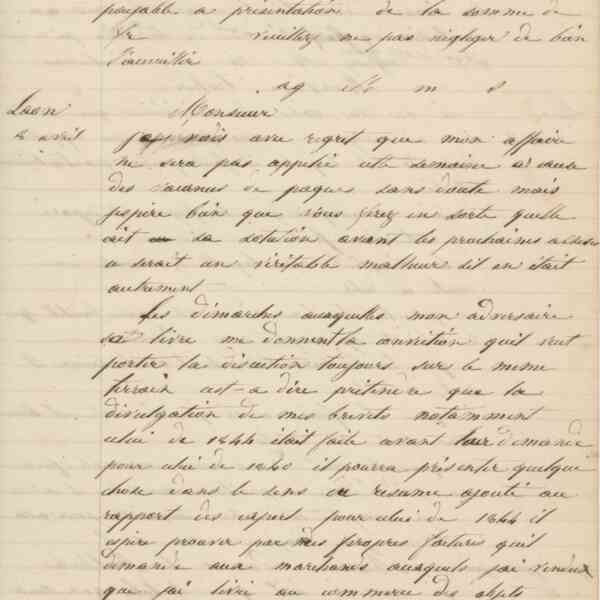 payable a présentation de la somme de
fr veuillez ne pas négliger de bien
l'acueillir
ag M m s
Laon
2 avril
Monsieur
je vois avec regret que mon affaire
ne sera pas appelée cette semaine a cause
des vacances de paques sans doute mais
jespère bien que vous ferez en sorte quelle
ait sa solution avant les prochaines assises
ce serait un véritable malheur sil en était
autrement
Les démarches auxquelles mon adversaire
se livre me donnent la conviction quil veut
porter la discution toujours sur le meme
terrein cest-a dire prétendre que la
divulgation de mes brevets notamment
celui de 1844 était faite avant leur demande
pour celui de 1840 il pourra présenter quelque
chose dans le sens du resumé ajouté au
rapport des expert pour celui de 1844 il
espère prouver par mes propres factures quil
demande aux marchands auxquels j'ai vendu
que j'ai livré au commerce des objets